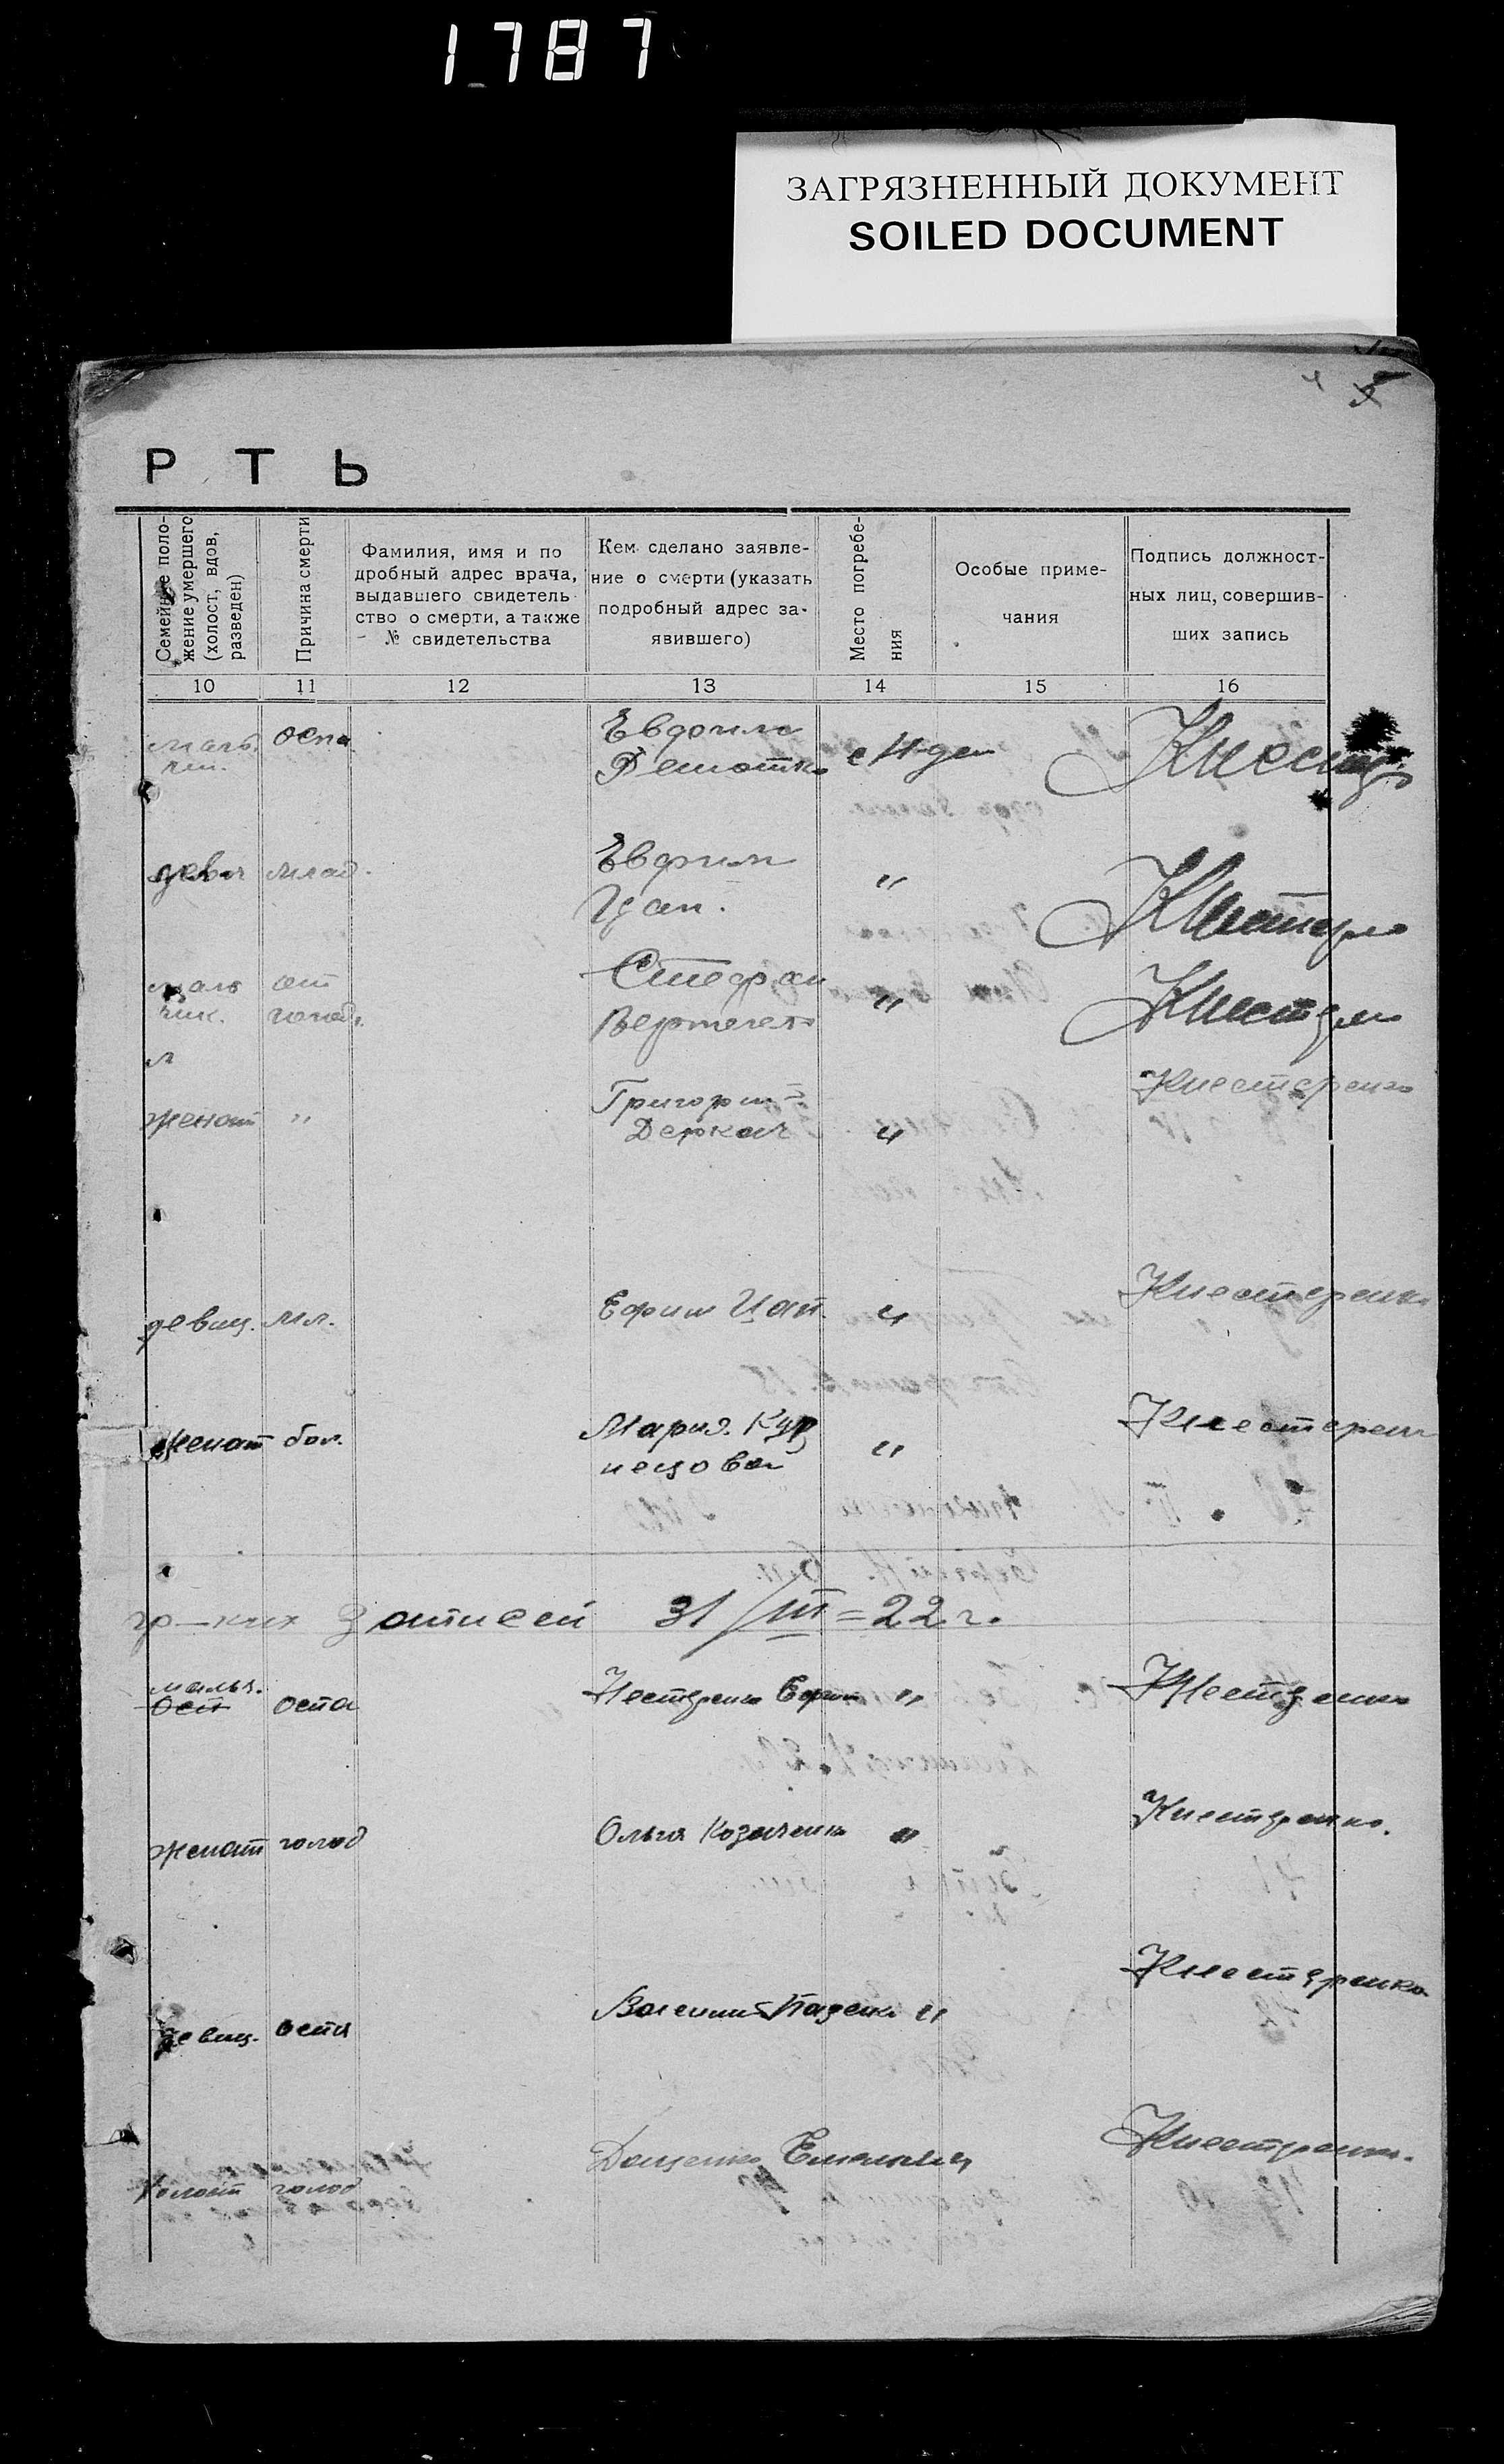 1787
ЗАГРЯЗНЕННЫЙ ДОКУМЕНТ
SOILED DOCUMENT
РТЬ
Семейное поло-
жение умершего
(холост, вдов,
разведен)
Причина смерти
Фамилия, имя и по
дробный адрес врача,
выдавшего свидетель-
ство о смерти, а также
№ свидетельства
Кем сделано заявле-
ние о смерти (указать
подробный адрес за-
явившего)
Место погребе-
ния
Особые приме-
чания
Подпись должност-
ных лиц, совершив-
ших запись
10 11 12 13 14 15 16
маль. оспа Евфим
чик.
девич млад. Евфим
Цап. "
маль от Стефан
чик. голода. "
женат " Григорий
Деркач "
Кнестеренко
девиц. мл. Ефим Цап. " Кнестеренко
женат бол. Мария Куз
нецовой " Кнестерен
записей 31/III=22 г.
мальч.
оспа Нестеренко Ефим " КНестеренко
женат голод Ольга Козаченко " Кнестеренко.
девиц. оспа " Кнестеренко
холост голод Доценко Емельян Кнестеренко.